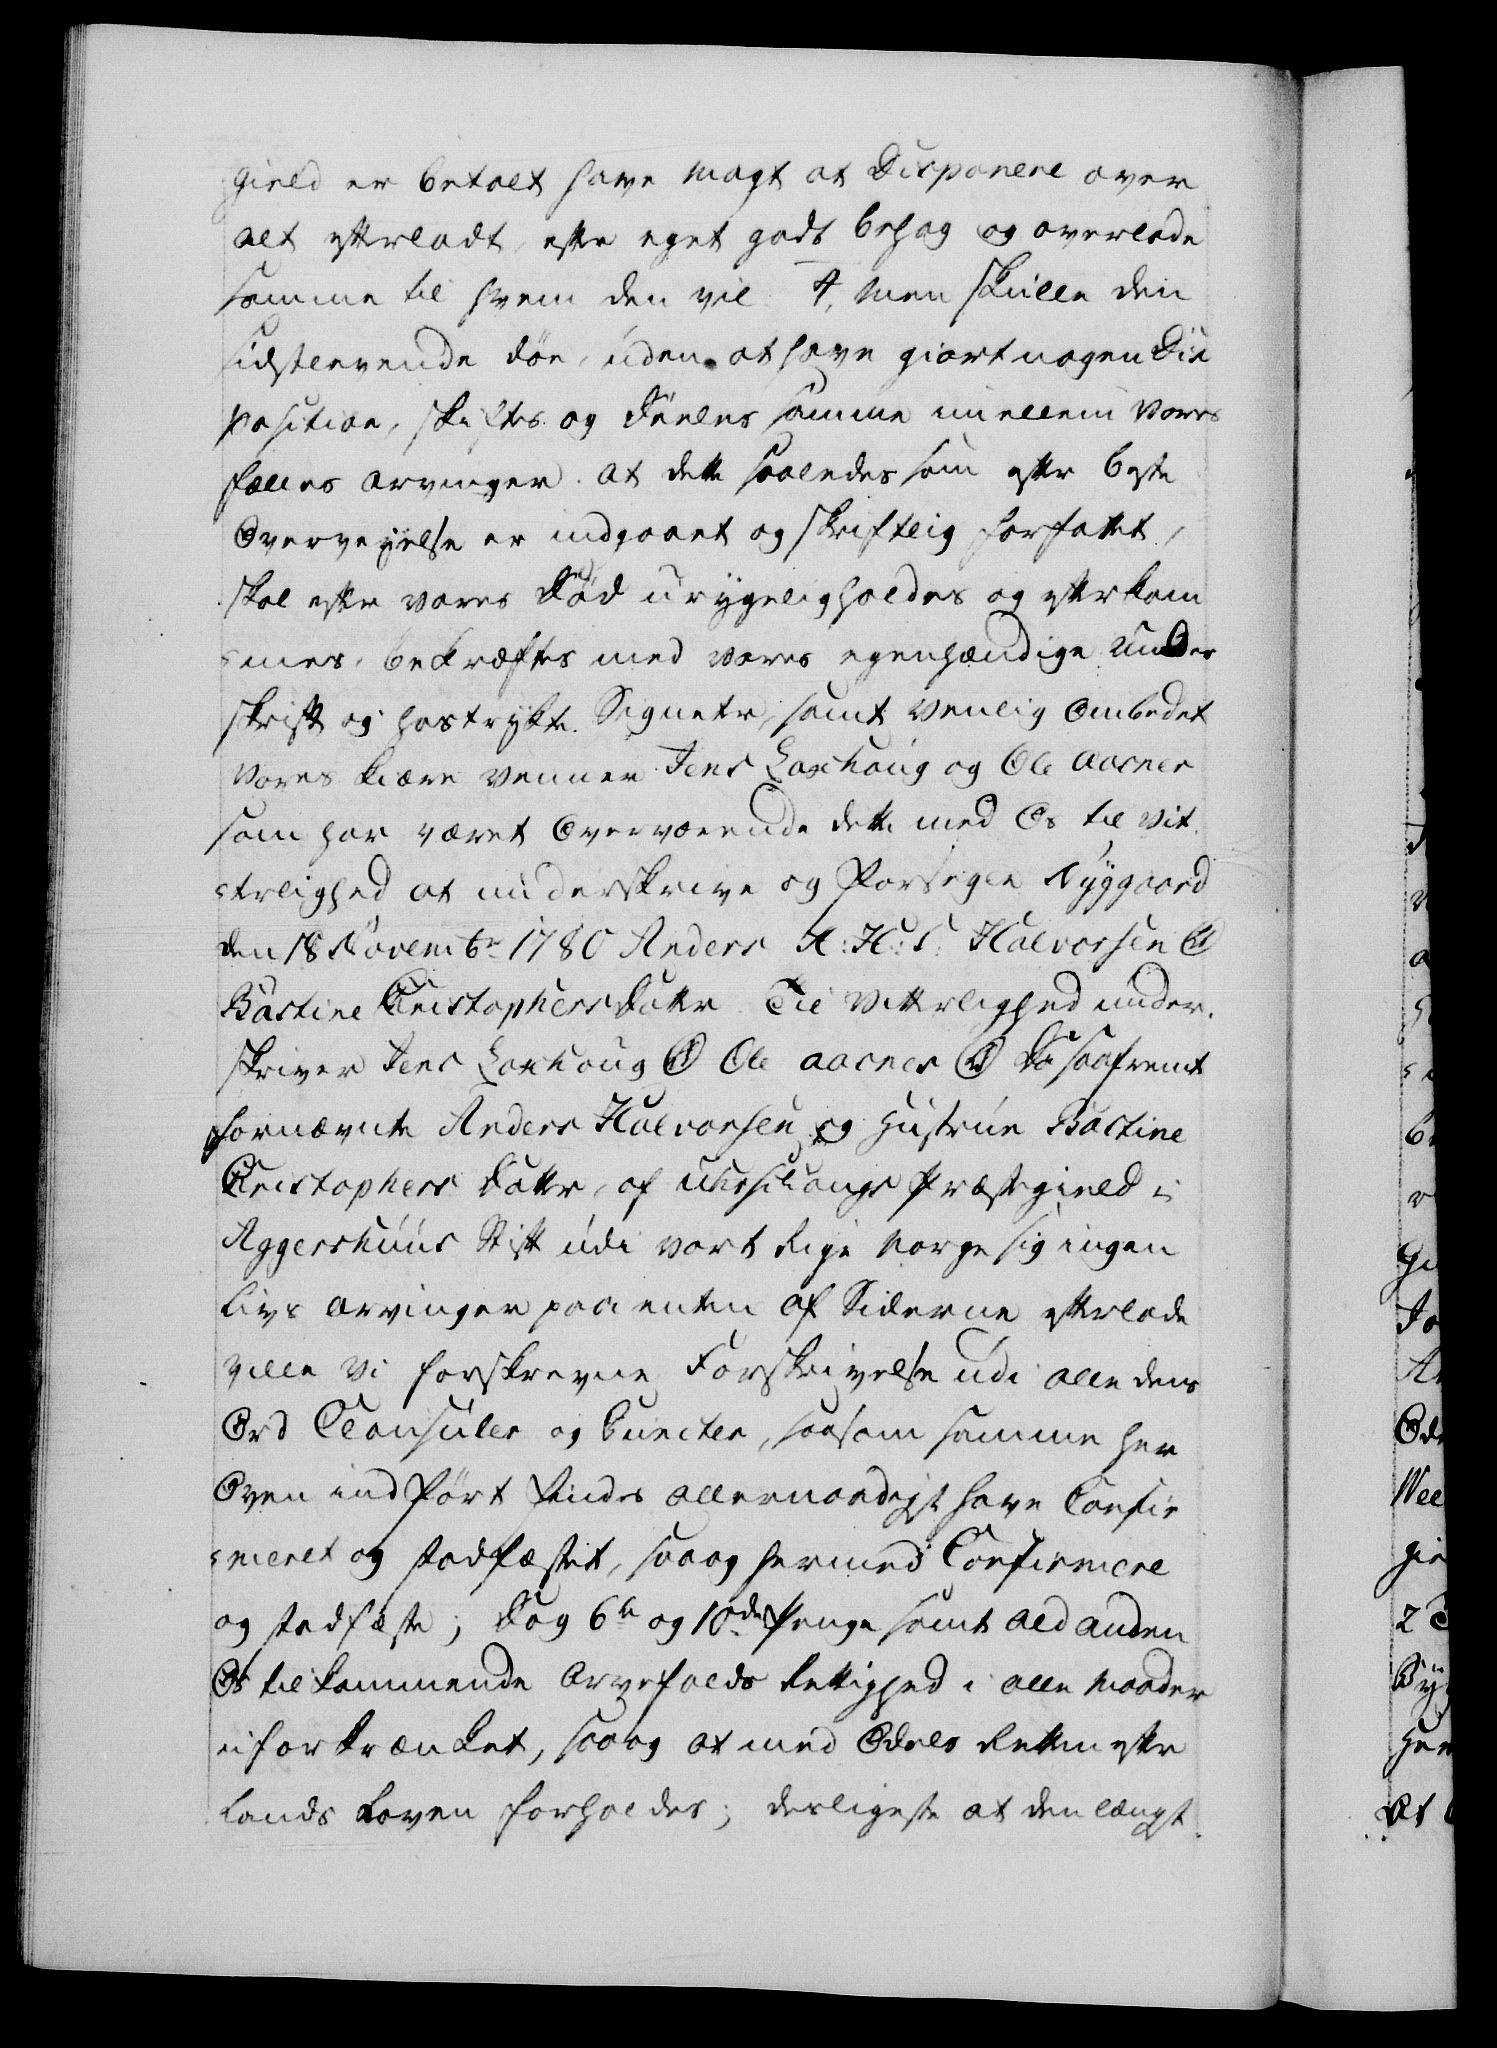 Gield er betalt have Magt at Disponere over
alt efterladt, efter eget godt behag og overlade
samme til hvem den vil 4, Men Skulle den
sidstlevende döe, uden at have giort nogen Dis
position, skiftes og deeles samme imellem vores
fælles arvinger. At dette saaledes som efter beste
Overveyelse er indgaaet og skriftlig forfattet,
skal efter vores Död urygelig holdes og efterkom
=mes, bekræftes med vores egenhændige Under
skrift og hostrykte Signeter, samt venlig Ombedet
vores kiære Venner Jens Laxhoug og Ole Aasnes
som har været Overværende dette med Os til Vit
=terlighed at underskrive og Forsegle Nyggaard
den 18 Novembr 1780 Anders A: H: S: Halvorsen
Bastine Christophers Datter Til Vitterlighed under.
skriver Jens Laxhoug Ole Aasnes Da saafremt
fornævnte Anders Halvorsen og Hustrue Bastine
Christophers Datter, af Præstegield i
Aggershuus Stift udi vort Rige Norge sig ingen
Livs Arvinger paa enten af Siderne efterlade
ville Vi forskrevne Forskrivelse udi alle dens
Ord Clausuler og Puncter, saasom samme her
Oven indfört findes allernaadigst have Confir
=meret og stadfæstet, saa og hermed Confirmere
og stadfæste; Dog 6te og 10de Penge samt ald anden
Os tilkommende Arvefalds Rettighed i alle Maader
uforkrænket, saa og at med Odels Retten efter
Lands Loven forholdes; desligeste at den længst